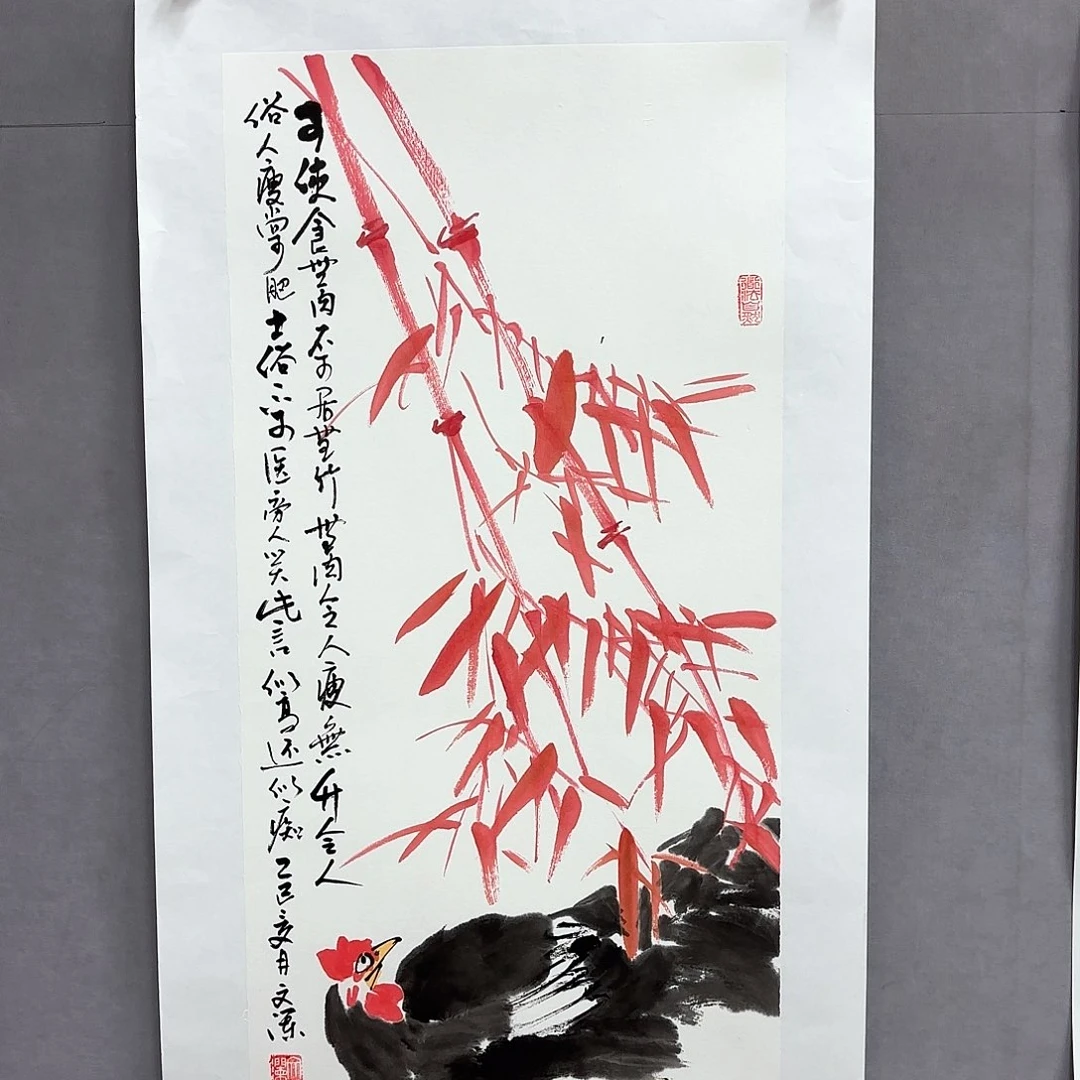 可使食無肉不可居無竹無肉令人瘦無竹令人
俗人瘦尚可肥士俗不可医旁人笑此言似高还似痴乙巳夏月文澜
道法自然